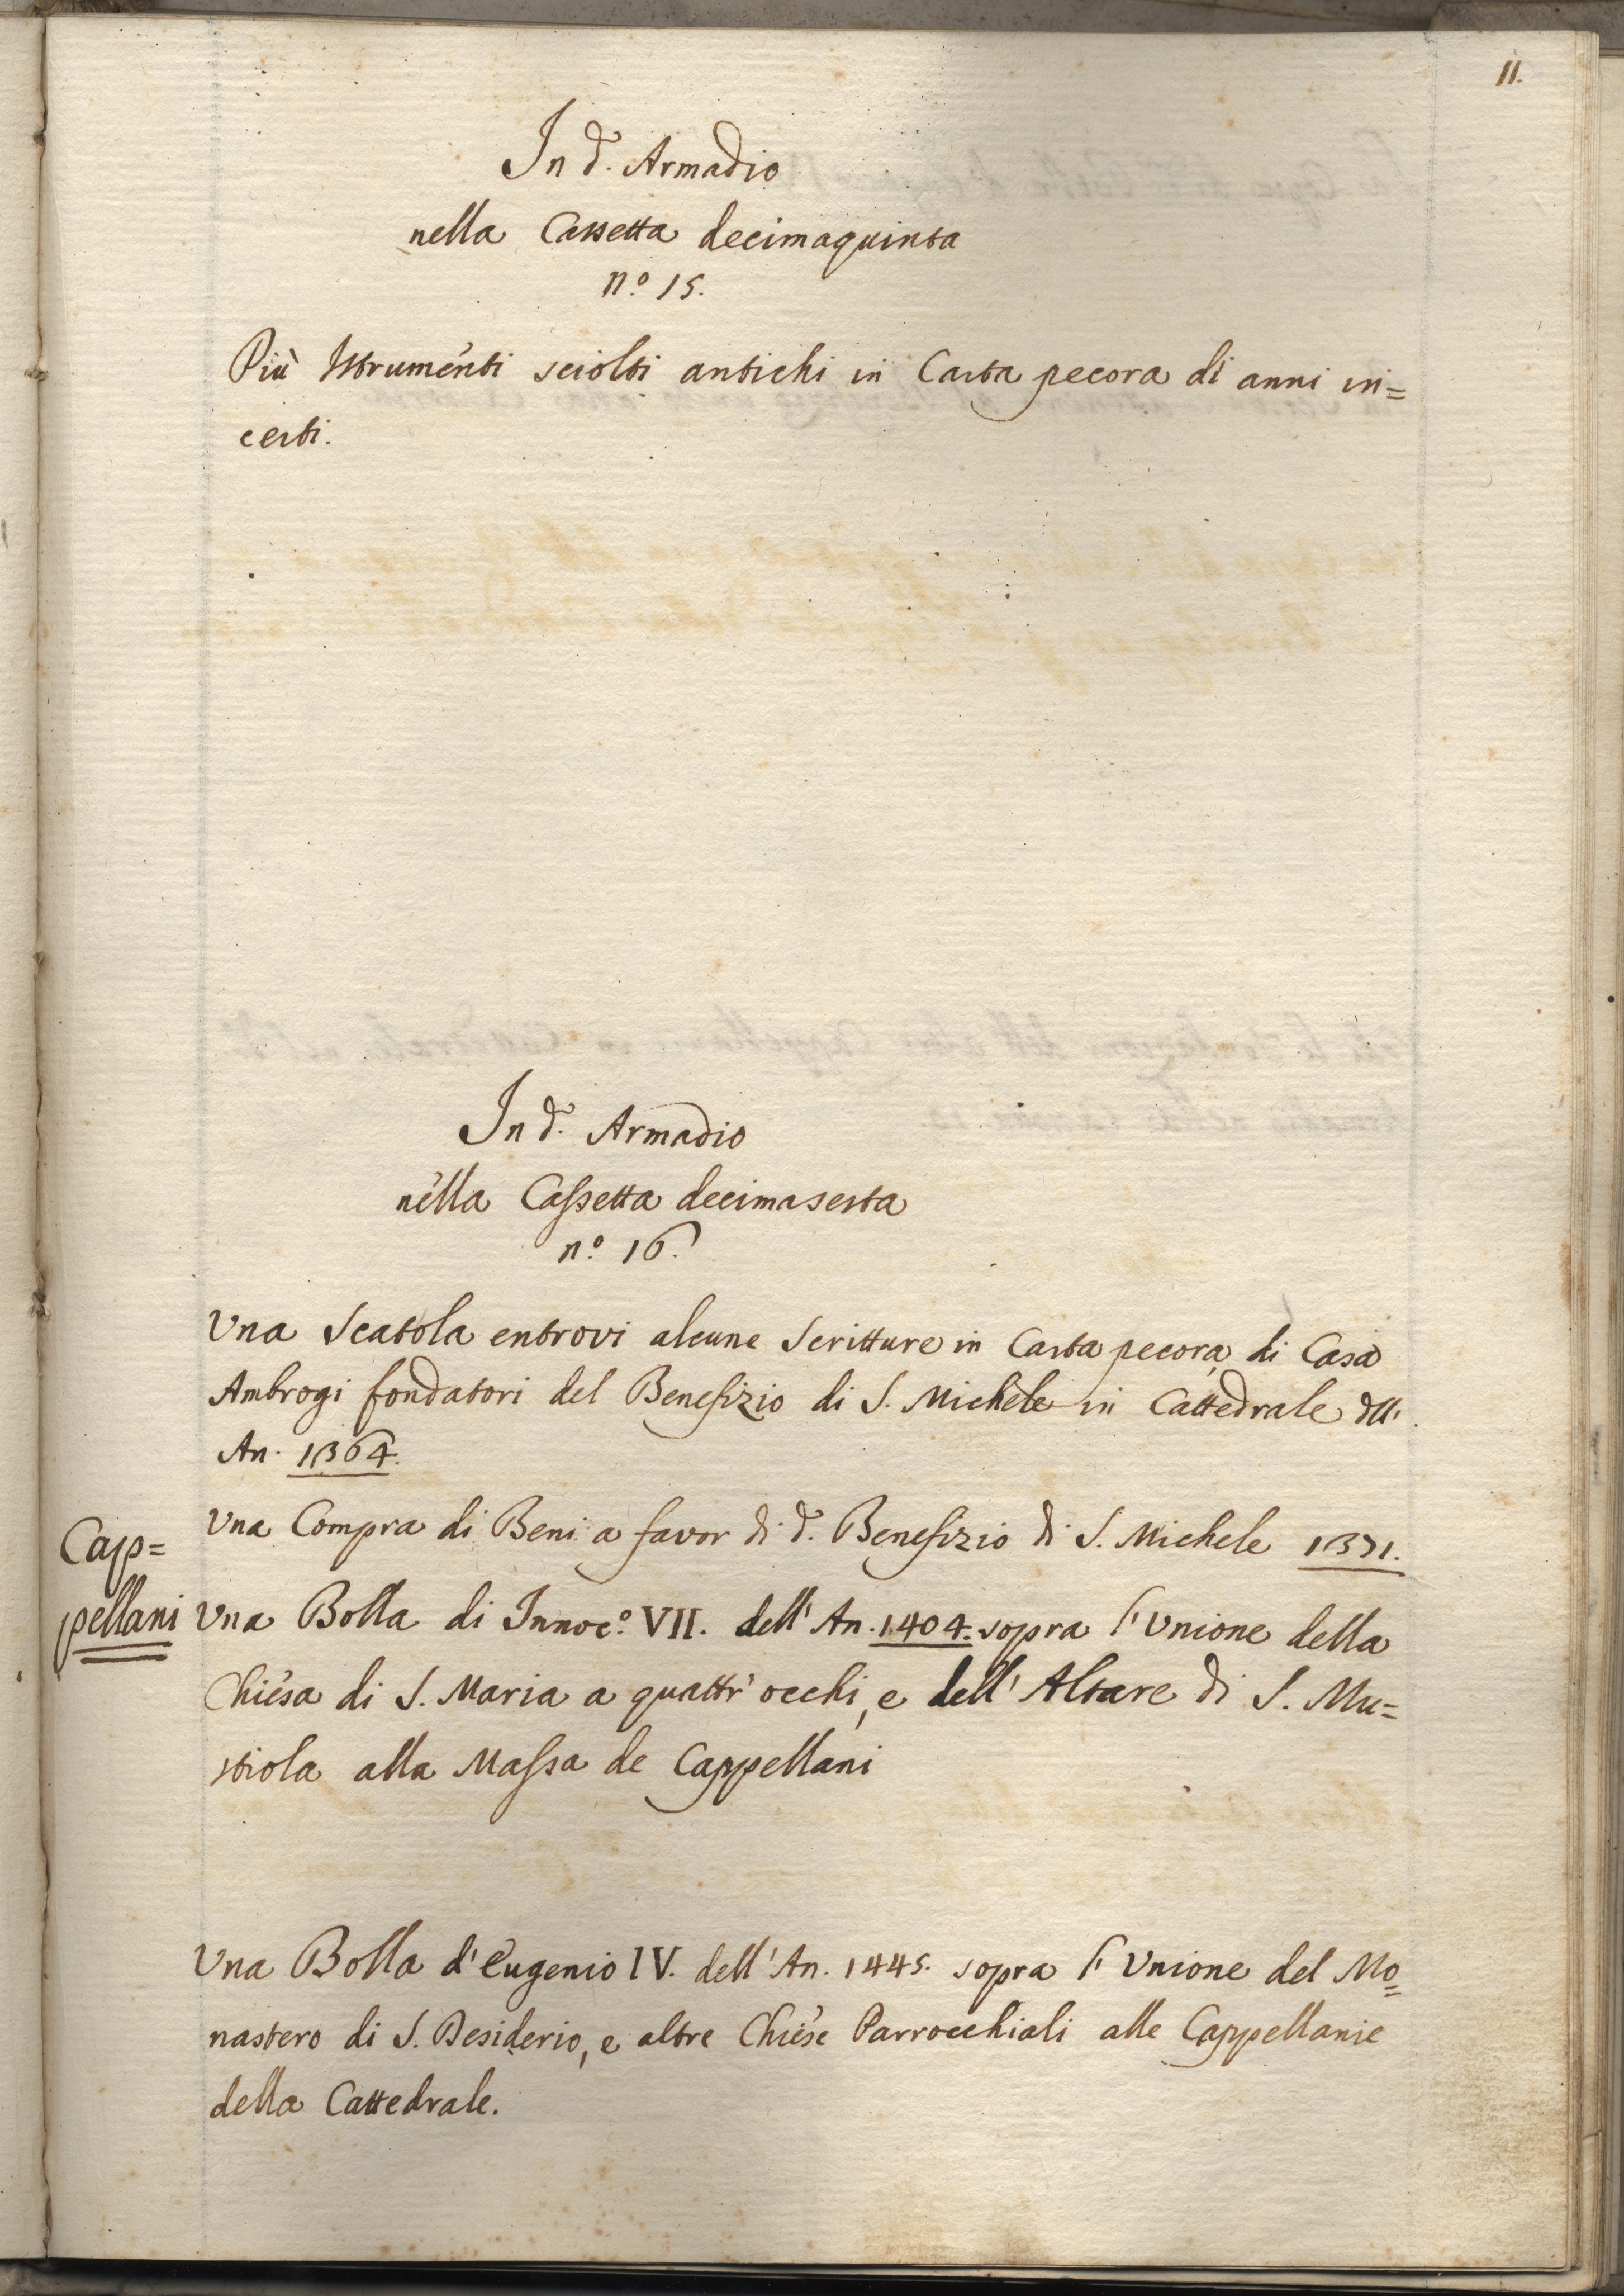 11.
In d.º Armadio
nella Cassetta decimaquinta
n.º 15.
Più Istrumenti sciolti antichi in Carta pecora di anni in=
certi.
In d.º Armadio
nella Cassetta decimasesta
n.º 16.
Una Scatola entrovi alcune Scritture in Carta pecora di Casa
Ambrogi fondatori del Benefizio di S. Michele in Cattedrale dell'
An. 1364.
Una Compra di Beni a favor di d.º Benefizio di S. Michele 1371.
Cap=
pellani
Una Bolla di Innoc.º VII. dell' An. 1404. sopra l'Unione della
Chiesa di S. Maria a quattr'occhi, e dell' Altare di S. Mu=
stiola alla Massa de Cappellani
Una Bolla d'Eugenio IV. dell' An. 1445. sopra l'Unione del Mo=
nastero di S. Desiderio, e altre Chiese Parrocchiali alle Cappellanie
della Cattedrale.